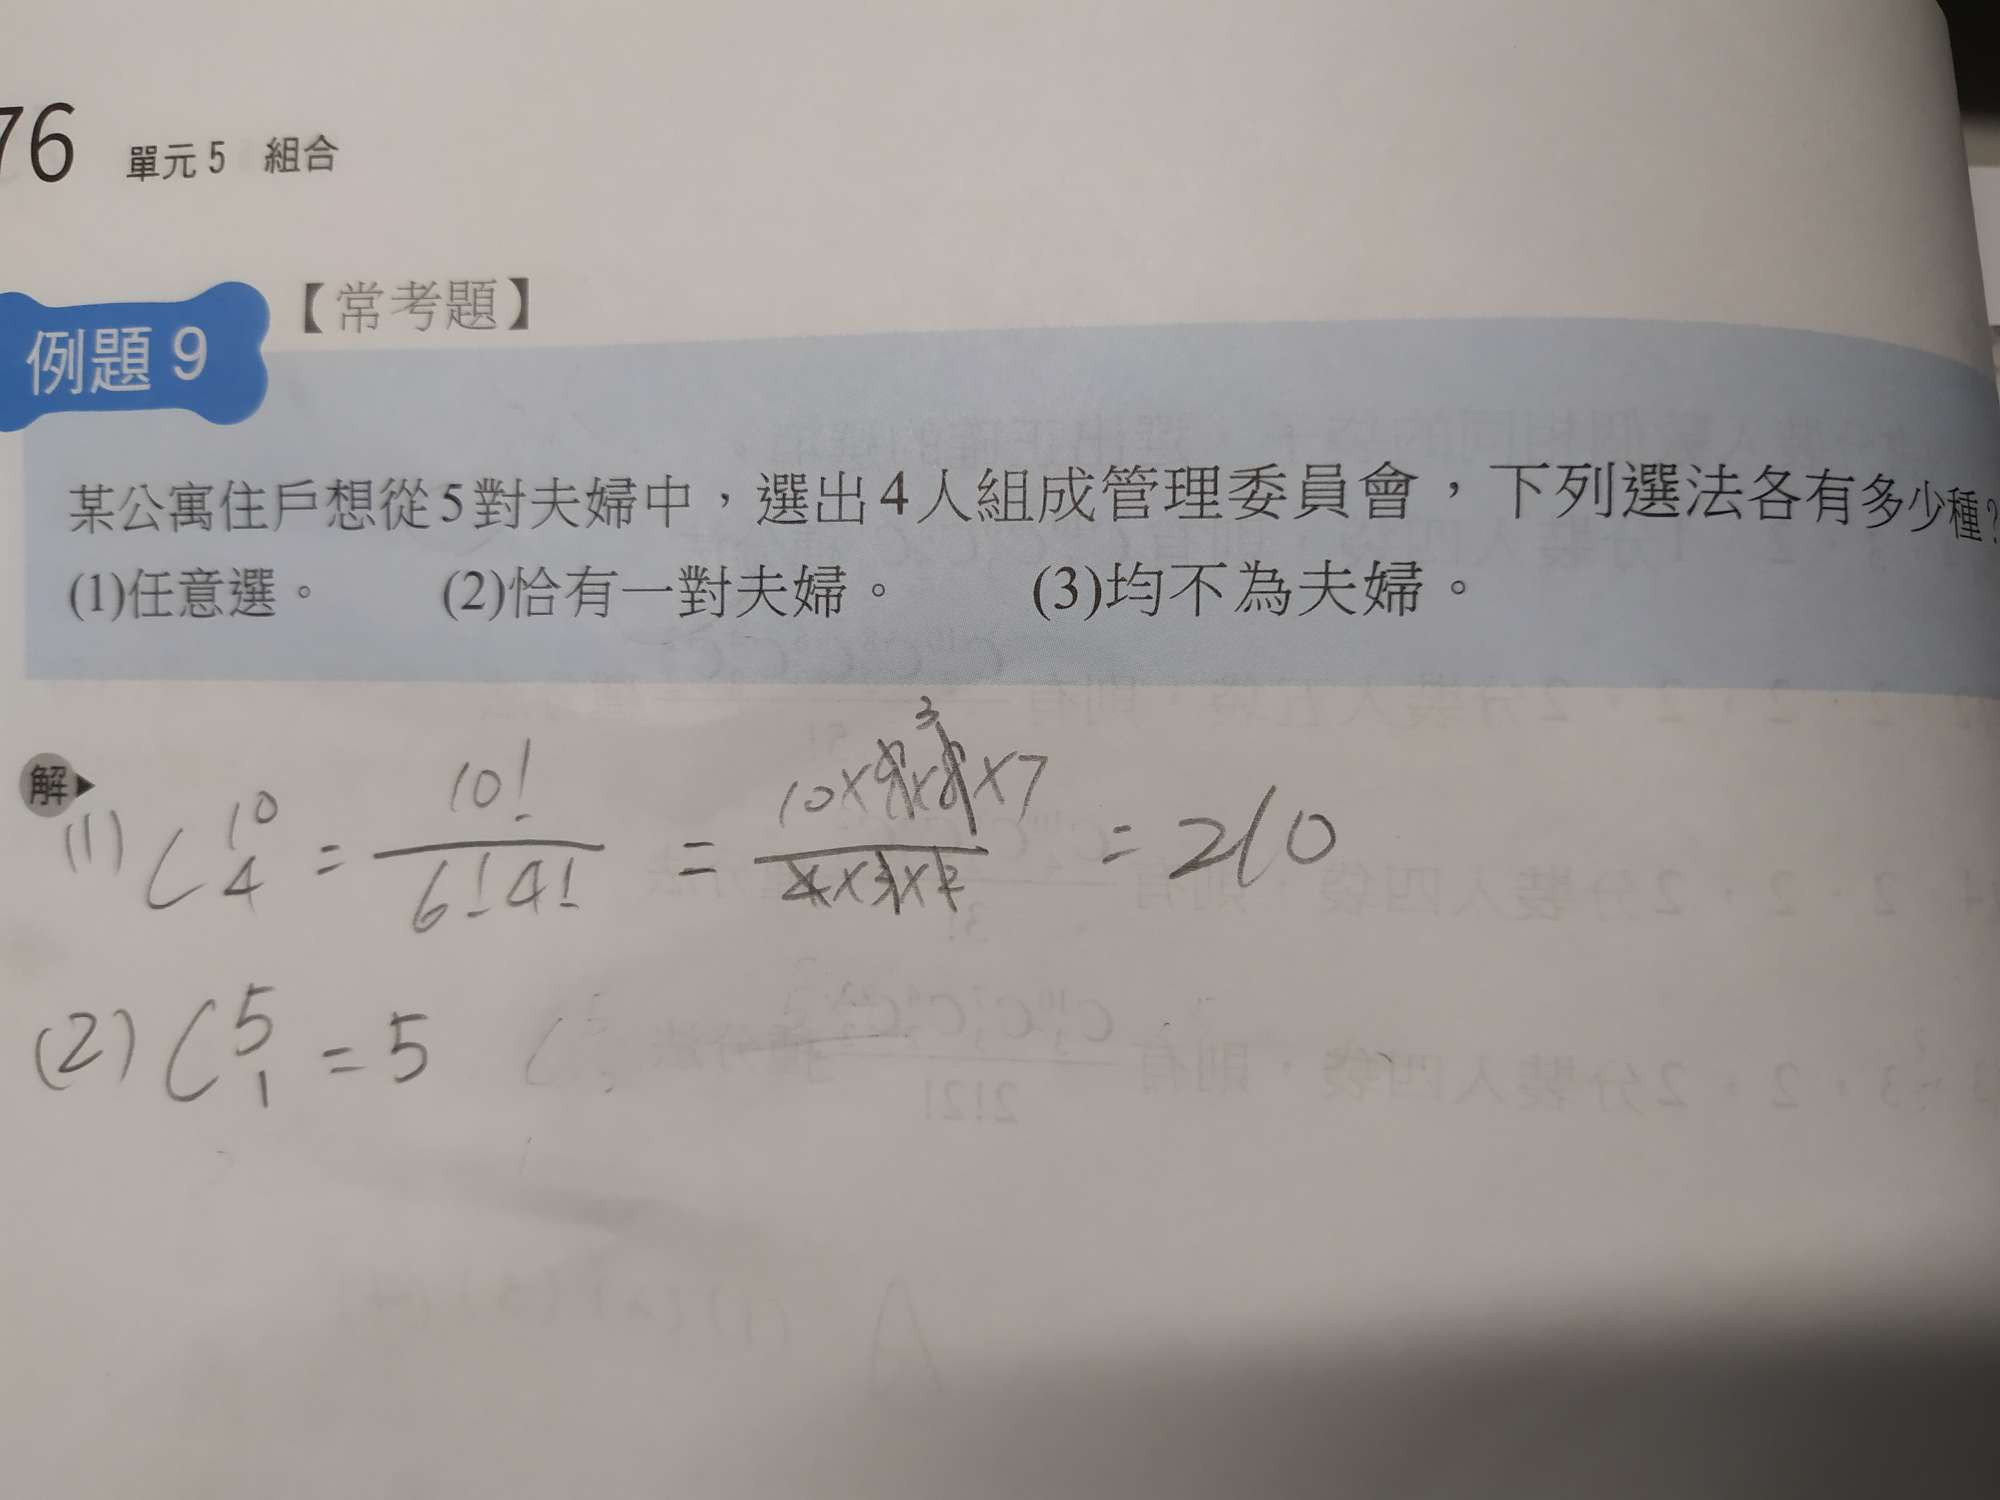 76 單元5 組合
例題9 【常考題】
某公寓住戶想從5對夫婦中，選出4人組成管理委員會，下列選法各有多少種？
(1)任意選。 (2)恰有一對夫婦。 (3)均不為夫婦。
解
(1) C^10_4 = 10!/6!4! = 10×9×8×7/4×3×2 = 210
3
(2) C^5_1 = 5